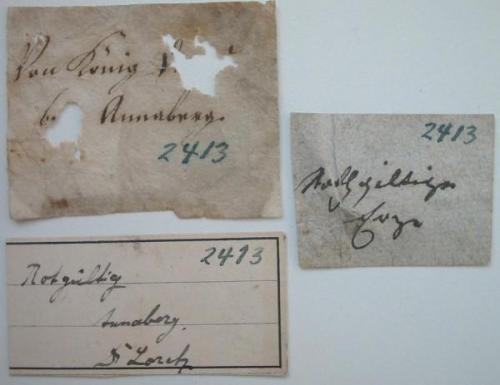 Von König
b. Annaberg.
2413
2413
Rothgiltig
Erz
2413
Rotgültig
Annaberg.
Dr Lorck